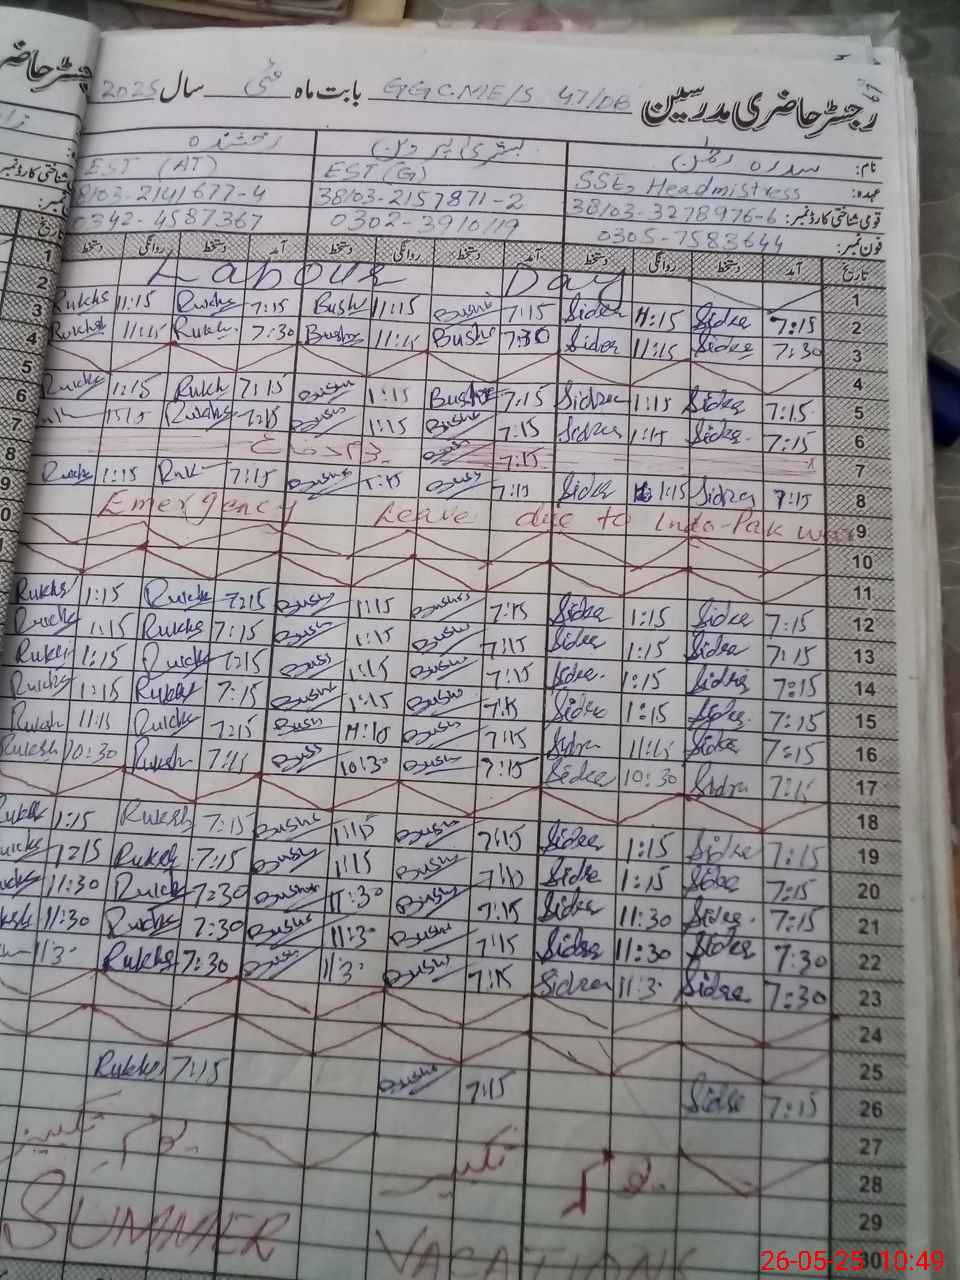 رجسٹر حاضری مدرسین GGCME/S 47/DB بابت ماہ مئی سال 2025
نام: سدرہ بشریٰ پروین رخشندہ
عہدہ: SSE, Headmistress EST (G) EST (AT)
قومی شناختی کارڈ نمبر: 38103-3278976-6 38103-2157871-2 8103-2141677-4
فون نمبر: 0305-7583644 0302-3910119 0342-4587367
تاریخ آمد دستخط روانگی دستخط آمد دستخط روانگی دستخط آمد دستخط روانگی
1 Labour Day
2 7:15 Sidra 11:15 Sidra 7:15 Bushr 11:15 Bush 7:15 Rukhs 11:15 Rukhs
3 7:30 Sidra 11:15 Sidra 7:30 Bushr 11:15 Bushr 7:30 Rukh 11:15 Rukhs
4
5 7:15 Sidra 1:15 Sidra 7:15 Bushr 1:15 Bushr 7:15 Rukh 1:15 Rukhs
6 7:15 Sidra 1:15 Sidra 7:15 Bushr 1:15 Bush 7:15 Rukhs 1:15
7 7:15 Bush
8 7:15 Sidra 1:15 Sidra 7:15 Bush 1:15 Bushr 7:15 Rukh 1:15 Rukhs
9 Emergency Leave due to Indo-Pak war
10
11
12 7:15 Sidra 1:15 Sidra 7:15 Bushr 1:15 Bushr 7:15 Rukh 1:15 Rukhs
13 7:15 Sidra 1:15 Sidra 7:15 Bushr 1:15 Bush 7:15 Rukhs 1:15 Rukh
14 7:15 Sidra 1:15 Sidra 7:15 Bushr 1:15 Bush 7:15 Rukh 1:15 Rukh
15 7:15 Sidra 1:15 Sidra 7:15 Bushr 1:15 Bushr 7:15 Rukhs 1:15 Rukhs
16 7:15 Sidra 11:15 Sidra 7:15 Bush 11:10 Bush 7:15 Rukhs 11:15 Ruksh
17 7:15 Sidra 10:30 Sidra 7:15 Bush 10:30 Bush 7:15 Rukh 10:30 Rukhsh
18
19 7:15 Sidra 1:15 Sidra 7:15 Bushr 1:15 Bushr 7:15 Rukhsh 1:15 Rukhs
20 7:15 Sidra 1:15 Sidra 7:15 Bush 1:15 Bushr 7:15 Rukhs 1215
21 7:15 Sidra 11:30 Sidra 7:15 Bushr 11:30 Bushr 7:30 Rukhs 11:30
22 7:30 Sidra 11:30 Sidra 7:15 Bushr 11:30 Bushr 7:30 Rukhs 11:30
23 7:30 Sidra 11:3 Sidra 7:15 Bushr 11:3 Bush 7:30 Rukhs 11:3
24
25
26 7:15 Sidra 7:15 Bushr 7:15 Rukhs
27
28 یوم تکبیر یوم تکبیر
29
30 SUMMER VACATIONS
26-05-25 10:49